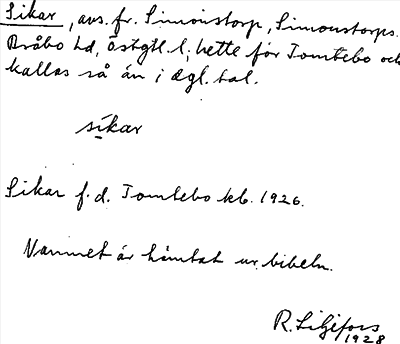 Sikar, avs. fr. Simonstorp, Simonstorps.
Bråbo hd, Östgtl. l; hette för Tomtebo och
kallas så än i dgl. tal.
síkar
Sikar f.d. Tomtebo kb. 1926.
Namnet är hämtat ur bibeln.
R. Liljefors
1928